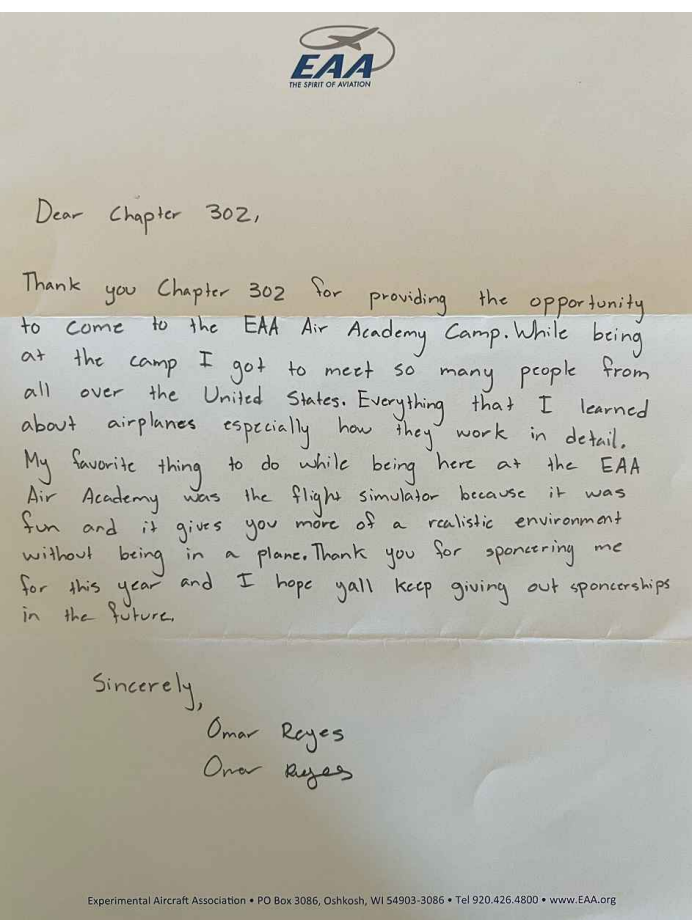 EAA
THE SPIRIT OF AVIATION
Dear Chapter 302,
Thank you Chapter 302 for providing the opportunity
to come to the EAA Air Academy Camp. While being
at the camp I got to meet so many people from
all over the United States. Everything that I learned
about airplanes especially how they work in detail.
My favorite thing to do while being here at the EAA
Air Academy was the flight simulator because it was
fun and it gives you more of a realistic environment
without being in a plane. Thank you for sponcering me
for this year and I hope yall keep giving out sponcerships
in the future.
Sincerely,
Omar Reyes
Omar Reyes
Experimental Aircraft Association • PO Box 3086, Oshkosh, WI 54903-3086 • Tel 920.426.4800 • www.EAA.org